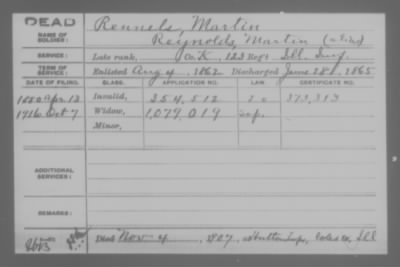 DEAD
NAME OF SOLDIER: Rennels, Martin
Reynolds, Martin (alias)
SERVICE: Late rank, Co. K, 123 Reg't Ill. Inf.
TERM OF SERVICE: Enlisted Aug 4, 1862 Discharged June 28, 1865
DATE OF FILING. CLASS. APPLICATION NO. LAW. CERTIFICATE NO.
1880 Apr 13 Invalid, 354,512 373,313
1916 Oct 7 Widow, 1,079,019
Minor,
ADDITIONAL SERVICES:
REMARKS:
Died Nov 4, 1907, at Hutton Twp, Coles Co, Ill